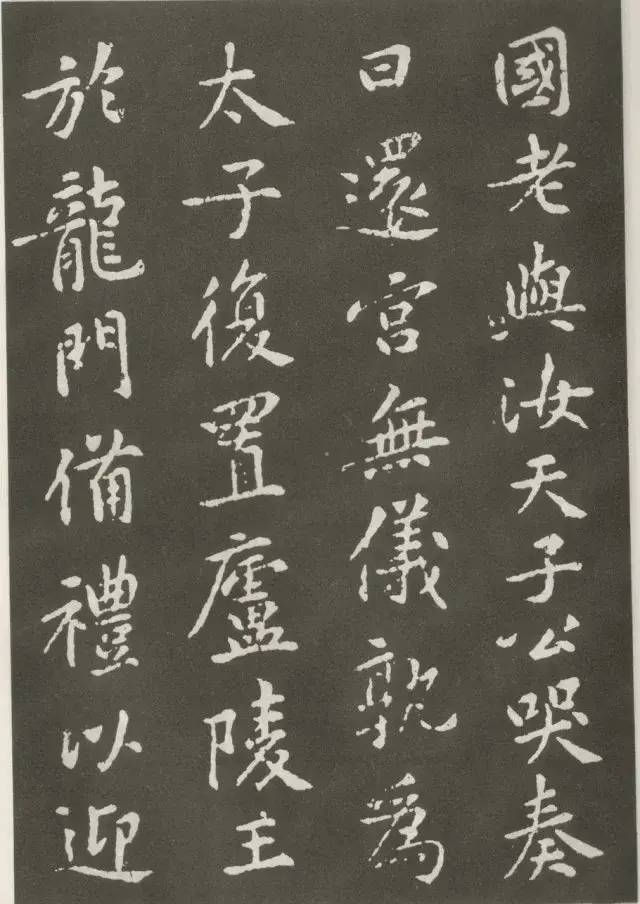 國老與汝天子公哭奏
曰還宮無儀孰爲
太子復置廬陵王
於龍門備禮以迎